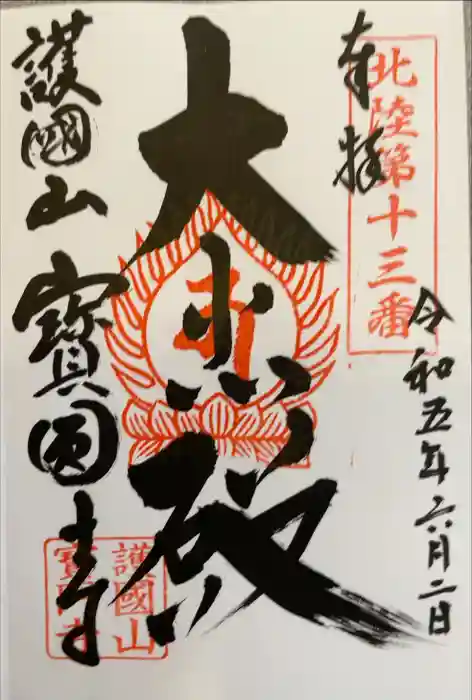 奉拝
北陸第十三番
令和五年六月二日
大悲殿
護國山 寶圓寺
護國山
寶圓寺